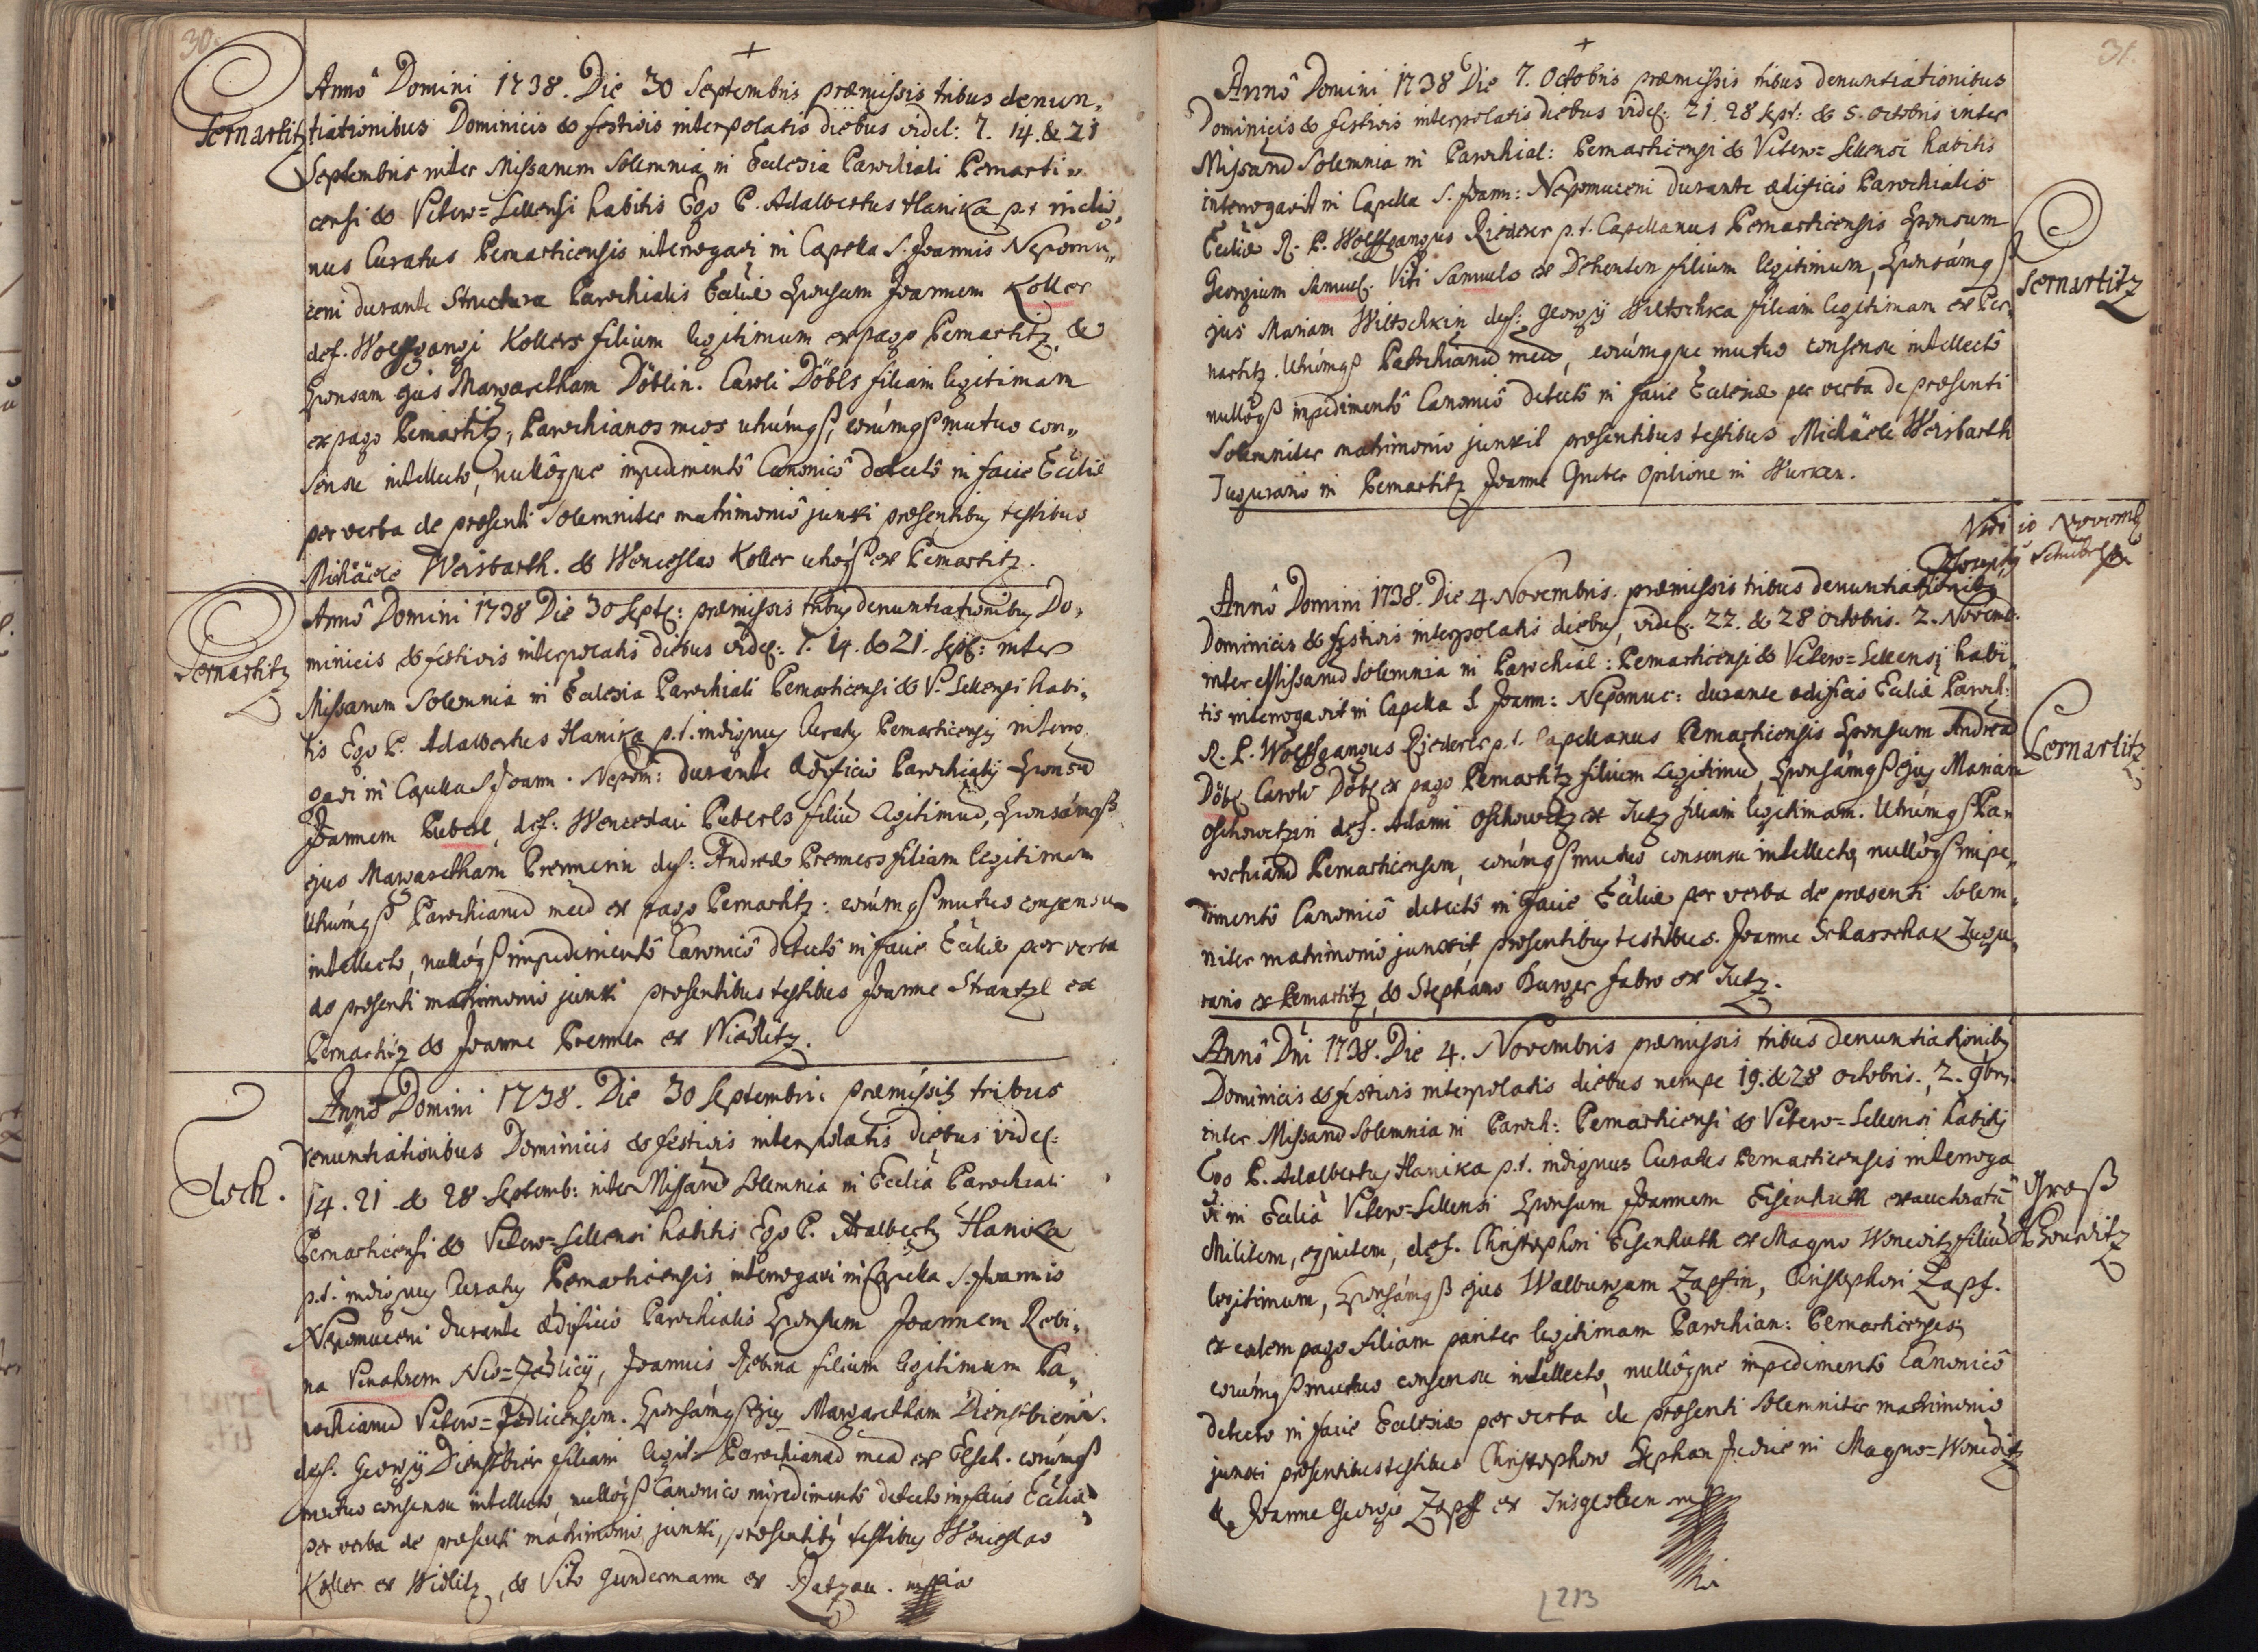 30.
Pernartitz
Annô Domini 1738. Die 30 Septembris præmissis tribus denun„
tiationibus Dominicis & festivis interpolatis diebus videl: 7. 14. & 21
Septembris inter Missarum Solemnia in Ecclesia Parochiali Pernarti„
censi & Vetero=Sellensi habitis Ego P. Adalbertus Hanika p.t. indig„
nus Curatus Pernarticensis interrogavi in Capella S. Joannis Nepomu„
ceni durante Structura Parochialis Eccliæ Sponsum Joannem Koller
def. Wolffgangi Kollers filium legitimum ex pago Pernartitz, &
Sponsam ejus Margaretham Döblin. Caroli Döbls filiam legitimam
ex pago Pernartitz, Parochianos meos utrúmqß, eorúmqß mutuo con„
sensu intellecto, nullôque impedimentô Canonicô detectô in facie Eccliæ
per verba de præsenti Solemniter matrimoniô junxi præsentibus testibus
Michäele Weisbarth. & Wenceslao Koller utroqß ex Pernartitz.
Pernartitz
Annô Domini 1738 Die 30 Sept: præmissis tribus denuntiationibus Do„
minicis & festivis interpolatis diebus videl: 7. 14. & 21. Sept: inter
Missarum Solemnia in Ecclesia Parochiali Pernarticensi & V. Sellensi habi„
tis Ego P. Adalbertus Hanika p.t. indignus Curatus Pernarticensis interro„
gavi in Capella S Joann. Nepom: durante ædificio Parochialis Sponsũ
Joannem Puberl, def: Wenceslai Puberls filiũ legitimũ, Sponsámqß
ejus Margaretham Premerin def: Andreæ Premers filiam legitimam
utrúmqß Parochianũ meũ ex pago Pernartitz: eorúmqß mutuo consensu
intellecto, nullóqß impedimentô Canonicô detectô in facie Eccliæ per verba
de præsenti matrimonio junxi præsentibus testibus Joanne Strantzl ex
Pernartitz & Joanne Premer ex Widlitz.
Elsch.
Annô Domini 1738. Die 30 Septembris præmissis tribus
denuntiationibus Dominicis & festivis interpolatis diebus videl:
14. 21. & 28 Septemb: inter Missarũ Solemnia in Ecclia Parochiali
Pernarticensi & Vetero=Sellensi habitis Ego P. Adalbertus Hanika
p.t. indignus Curatus Pernarticensis interrogavi in Capella S. Joannis
Nepomuceni durante ædificio Parochialis Sponsum Joannem Rebi„
na Joannis Rebina filium legitimum Pa„
rochianũ Vetero=Zedlicensem. Sponsámqß ejus Margaretham Dienstbierin.
def. Georgij Dienstbier filiam legit. Parochianã meã ex Elsch. eorúmqß
mutuo consensu intellectô nullóqß Canonico impedimentô detecto in facie Eccliæ
per verba de præsenti matrimonio junxi, præsentibus testibus Wenceslao
Koller ex Widlitz, & Vito Gundermann ex Ratzau. mppria
31.
Annô Domini 1738 Die 7. Octobris præmissis tribus denuntiationibus
Dominicis & festivis interpolatis diebus videl: 21. 28 Sept: & 5. Octobris inter
Missarũ Solemnia in Parochial: Pernarticensi & Vetero=Sellensi habitis
interrogavit in Capella S. Joann: Nepomuceni durante ædificio Parochialis
Eccliæ R. P. Wolffgangus Riederer p.t. Capellanus Pernarticensis Sponsum
Georgium Samuel. Viti Samuels ex Dehenten filium legitimum, Sponsámqß
Pernartitz
jus Mariam Wiltschkin def: Georgij Wiltschka filiam legitimam ex Per„
nartitz. Utrúmqß Parochianũ meũ, eorúmque mutuo consensu intellectô
nullôqß impedimentô Canonicô detectô in facie Ecclesiæ per verba de præsenti
Solemniter matrimonio junxit præsentibus testibus Michäele Weisbarth
Tugurario in Pernartitz Joanne Gruber Opilione in Wurken.
Vidi 10 Novemb
Annô Domini 1738. Die 4 Novembris. præmissis tribus denuntiationibus
Dominicis & festivis interpolatis diebus, videl. 22. & 28 Octobris. 2. Novemb.
inter Missarũ Solemnia in Parochial: Pernarticensi & Vetero=Sellensi habi„
tis interrogavit in Capella S Joann: Nepomuc: durante ædificio Eccliæ Paroch:
R. P. Wolffgangus Riederer p.t. Capellanus Pernarticensis Sponsum Andreã
Pernartitz
Döbl Caroli Döbl ex pago Pernartitz filium legitimũ, Sponsámqß ejus Mariam
Oschowetzin def. Adami Oschowetz ex Tutz filiam legitimam. Utrúmqß Pa„
rochianũ Pernarticensem, eorúmqß mutuo consensu intellecto, nullóqß impe„
dimentô Canonicô detectô in facie Eccliæ per verba de præsenti Solem„
niter matrimonio junxit, præsentibus testibus. Joanne Scharschak Tugu„
rario ex Pernartitz, & Stephano Burger fabro ex Tutz.
Annô Dni 1738. Die 4. Novembris præmissis tribus denuntiationibus
Dominicis & festivis interpolatis diebus nempe 19. & 28 Octobris., 2. 9bris
inter Missarũ Solemnia in Paroch: Pernarticensi & Vetero=Sellensi habitis
Ego P. Adalbertus Hanika p.t. indignus Curatus Pernarticensis interroga„
vi in Ecclia Vetero=Sellensi Sponsum Joannem Eisenhuth exauctoratũ
Groß
Wonewitz
Militem, equitem, def. Christophori Eisenhuth ex Magno Wonewitz filiũ
legitimum, Sponsámqß ejus Walburgam Zapfin, Christophori Zapf.
ex eodem pago filiam pariter legitimam Parochian: Pernarticenses,
eorúmqß mutuo consensu intellecto, nullôque impedimentô Canonicô
detecto in facie Ecclesiæ per verba de præsenti Solemniter matrimonio
junxi præsentibus testibus Christophoro Stephan Judice in Magno=Wonewitz
& Joanne Georgio Zapf ex Insgesteen mp
213